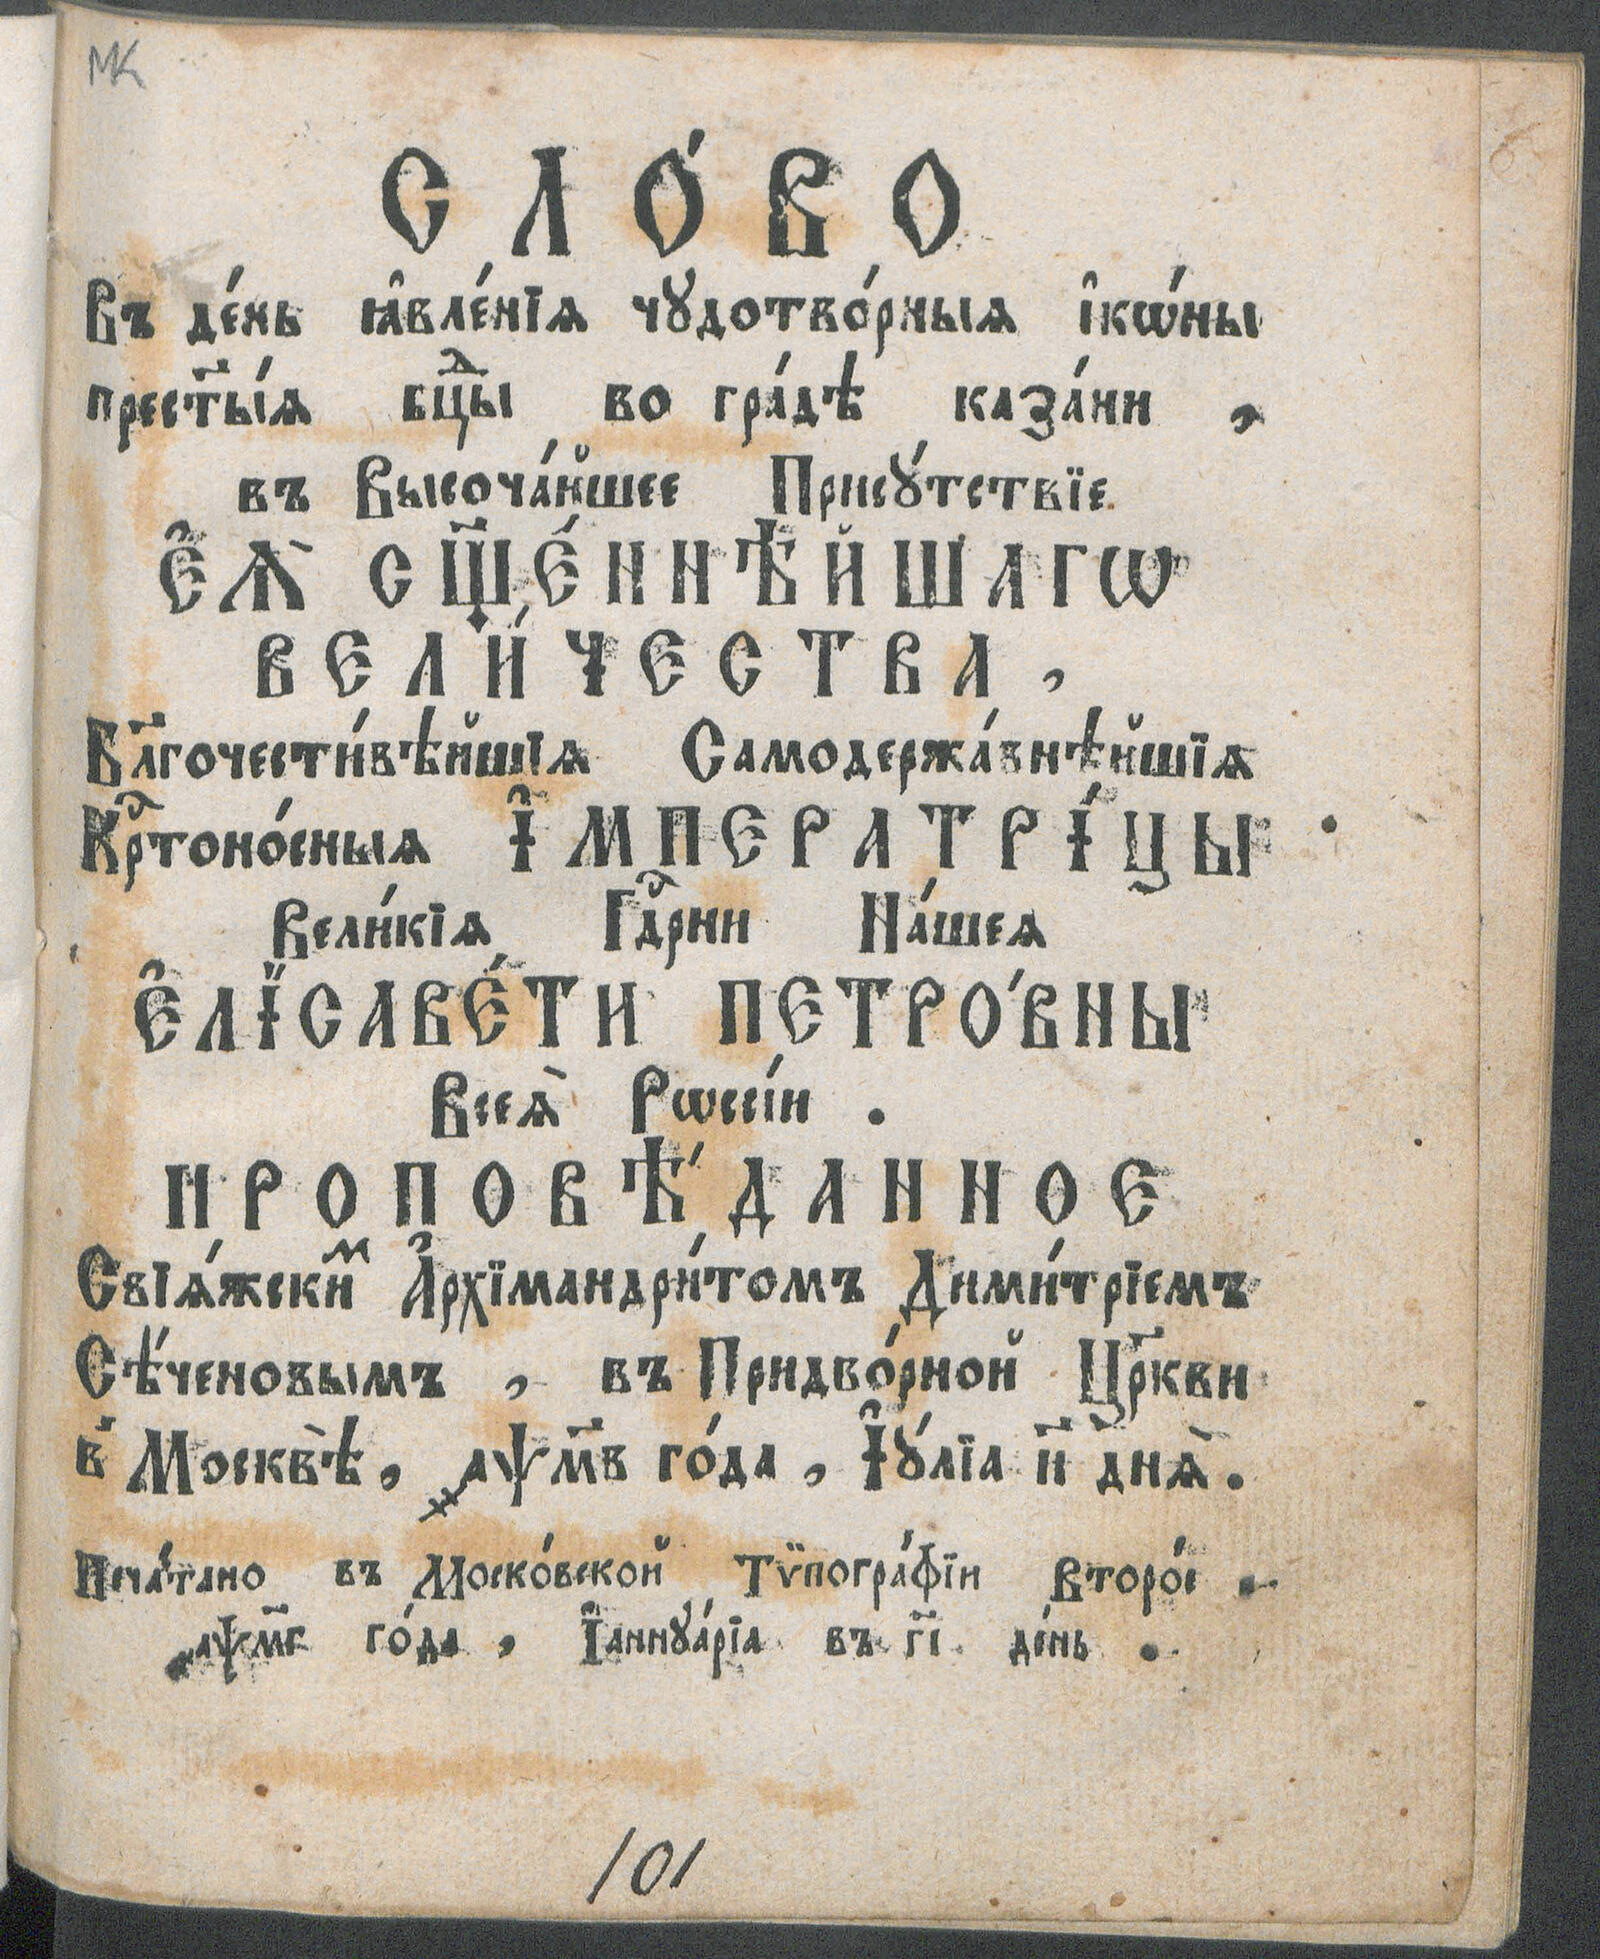 МК
СЛО́ВО
Въ де́нь ꙗ҆вле́нїѧ чꙋдотво́рныѧ і҆кѡ́ны
прест҃ы́ѧ бцⷣы во гра́дѣ каза́ни ,
въ Высоча́йшее Присꙋ́тствїе
Є҆Ѧ̀ СЩ҃Е́ННѢЙШАГѠ
ВЕЛИ́ЧЕСТВА ,
Бл҃гочести́вѣйшїѧ Самодержа́внѣйшїѧ
Крⷭ҇тоно́сныѧ І҆МПЕРАТРІ́ЦЫ .
Вели́кїѧ Гдⷭ҇рни На́шеѧ
Є҆ЛЇСАВЕ́ТИ ПЕТРО́ВНЫ
Всеѧ̀ Рѡссі́и .
ПРОПОВѢ́ДАННОЕ
Свїѧ́жскиⷨ А҆рхїмандри́томъ Дими́трїемъ
Сѣ́ченовымъ , въ Придво́рной Цр҃кви
в̾ Москвѣ̀ , ҂аѱм҃в го́да , І҆ꙋ́лїа и҃ днѧ̀ .
Печа́тано въ Моско́вской Тѷпогра́фїи второ́е
҂аѱм҃г го́да , І҆аннꙋа́рїа въ г҃і де́нь .
101